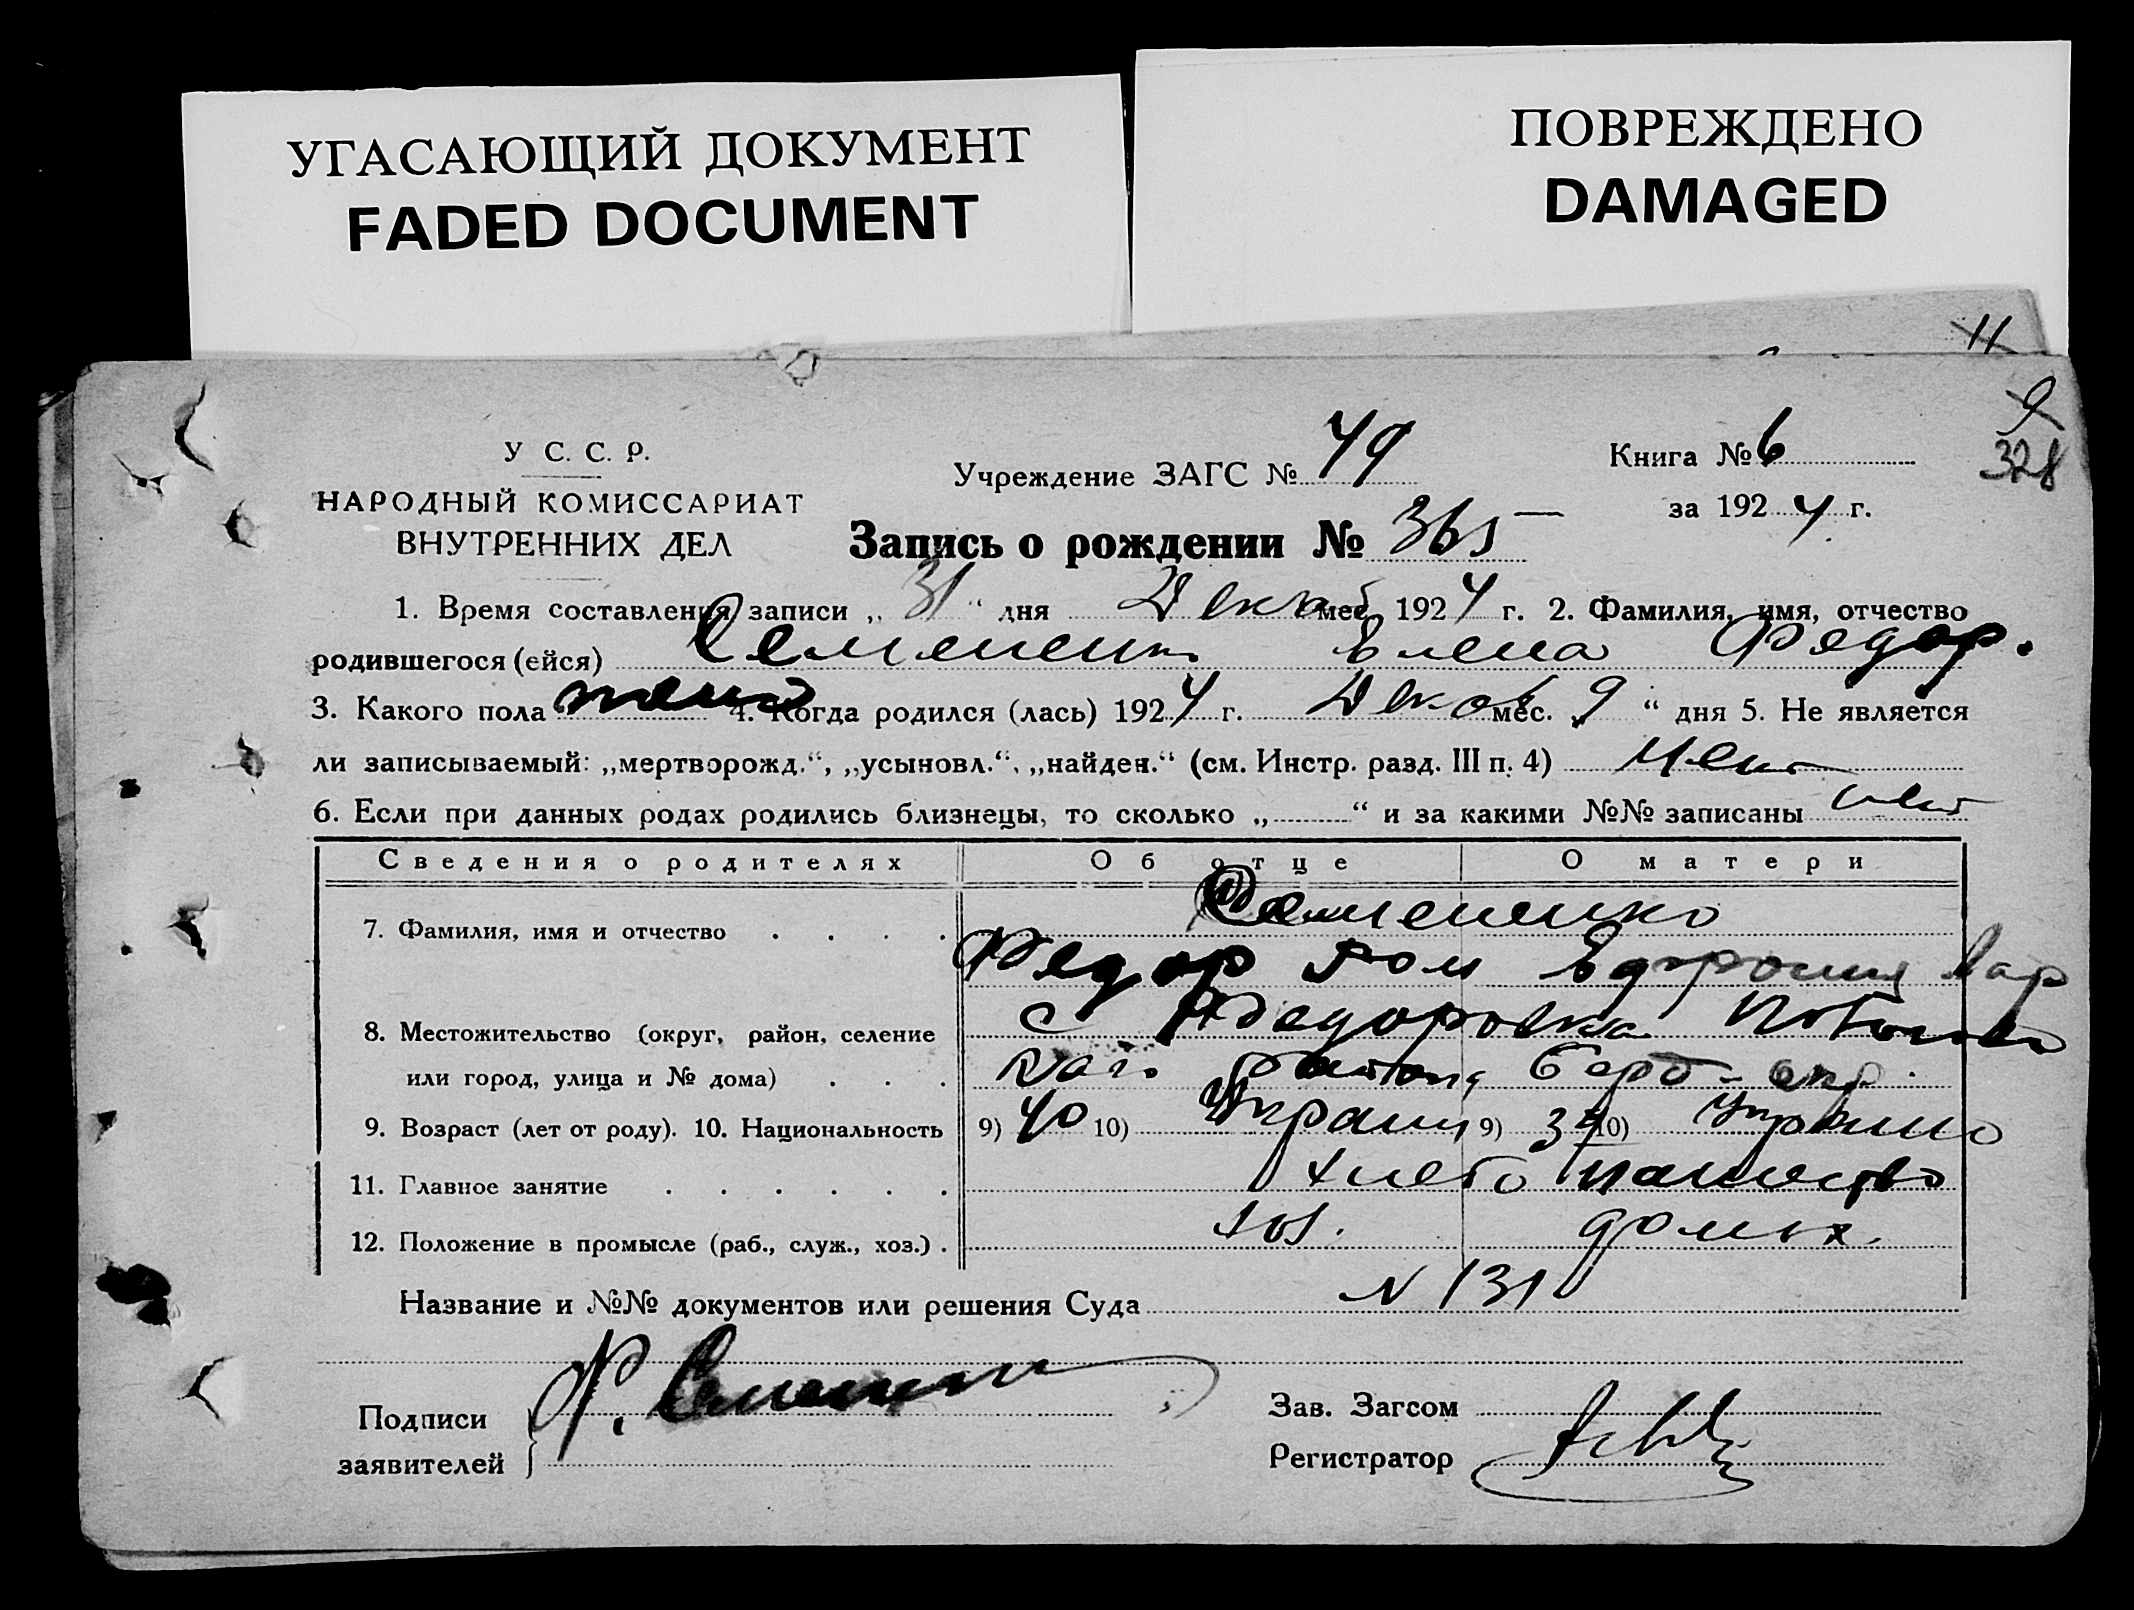 УГАСАЮЩИЙ ДОКУМЕНТ
FADED DOCUMENT
ПОВРЕЖДЕНО
DAMAGED
11
9
328
У С. С. Р.
НАРОДНЫЙ КОМИССАРИАТ
ВНУТРЕННИХ ДЕЛ
Учреждение ЗАГС № 49
Книга № 6
за 1924 г.
Запись о рождении № 365
1. Время составления записи „31“ дня Декаб мес. 1924 г. 2. Фамилия, имя, отчество
родившегося (ейся) Семененко Елена Федор.
3. Какого пола женс 4. Когда родился (лась) 1924 г. Декаб мес. „9“ дня 5. Не является
ли записываемый: „мертворожд.“, „усыновл.“, „найден.“ (см. Инстр. разд. III п. 4) нет
6. Если при данных родах родились близнецы, то сколько „ “ и за какими №№ записаны нет
Сведения о родителях Об отце О матери
7. Фамилия, имя и отчество Семененко
Федор Ром Евдрония Вар
8. Местожительство (округ, район, селение с Федоровка
или город, улица и № дома) окр.
9. Возраст (лет от роду). 10. Национальность 9) 40 10) Украин 9) 39 10) Украин
11. Главное занятие хлебопашество
12. Положение в промысле (раб., служ., хоз.) хоз. домх.
Название и №№ документов или решения Суда N 131
Подписи
заявителей
Ф. Семененко
Зав. Загсом
Регистратор